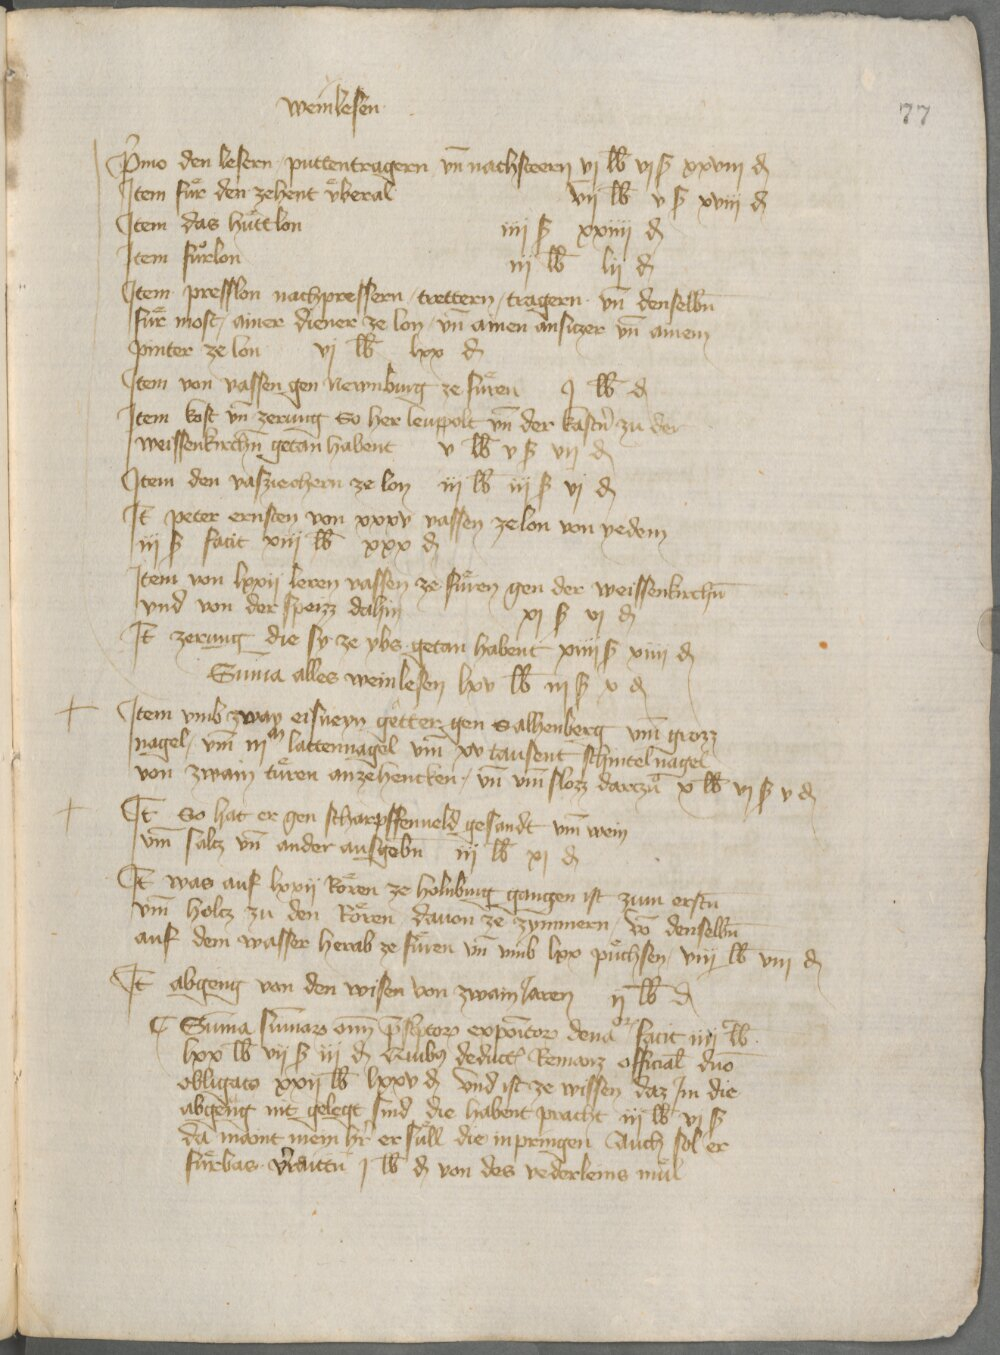 weinlesen
77
Primo den lesern / puttentragern vn̄ nachsteern vj lb vj ß xxviii d
Item fuͤr den zehent vͤberal vij lb v ß xviij d
Item das huͤttlon iiij ß xxiiij d
Item fuͦrlon iij lb lij d
Item presslon nachpressern / trettern / tragern vn̄ denselbn̄
fuͤr most / ainer diener ze lon / vn̄ ainen ansiczer vn̄ ainem
pinter ze lon vj lb lxx d
Item von vassen gen Newnburg ze fuͤren j lb d
Item kost vn̄ zerung So her leuppolt vn̄ der kastn̄ zu der
weissenkirchn̄ getan habent v lb v ß vij d
Item den vasziechern ze lon iij lb iij ß vj d
It̄ peter ernsten von xxxv vassen ze lon von yedem
iij ß facit xiij lb xxx d
Item von lxxij leren vassen ze fuͤren gen der weissenkirchn̄
vnd von der speizz dahin xj ß vj d
It̄ zerung die sy ze ybs getan habent xiiij ß xiiij d
Sum̄a alles weinlesen lxv lb iij ß x d
Item vmb zway eisneyn gётter gen Salhenberg vm̄ grozz
nagel / vm̄ iijᵐ lattennagel vm̄ xv tausent schintelnagel
von zwain tuͤren anzehencken / vn̄ vm̄ slozz darczuͦ x lb vj ß v d
It̄ So hat er gen scharpffenueld gesandt vm̄ wein
vm̄ salcz vn̄ ander ausgebn̄ iij lb xj d
It̄ was auf lxxij Roͤren ze holnburg gangen ist zum erstn̄
vm̄ holcz zu den Roͤren dauon ze zymmern vō denselbn̄
auf dem wasser herab ze fuͤren vn̄ vmb lxx puͤchsen viij lb viij d
It̄ abgeng von den wisen von zwain Jaren ij lb d
Sum̄a sum̄aꝝ facit iiij lb
lxx lb vij ß iij d Quibus deduct̄ official duō
obligato xxij lb lxxv d vnd ist ze wissen daz Jn die
abgeng nit gelegt sind die habent pracht iij lb vj ß
da maint mein hr̄ er suͤll die inpringen Auch sol er
fuͤrbas v̓raittn̄ j lb d von des vederleins muͤl